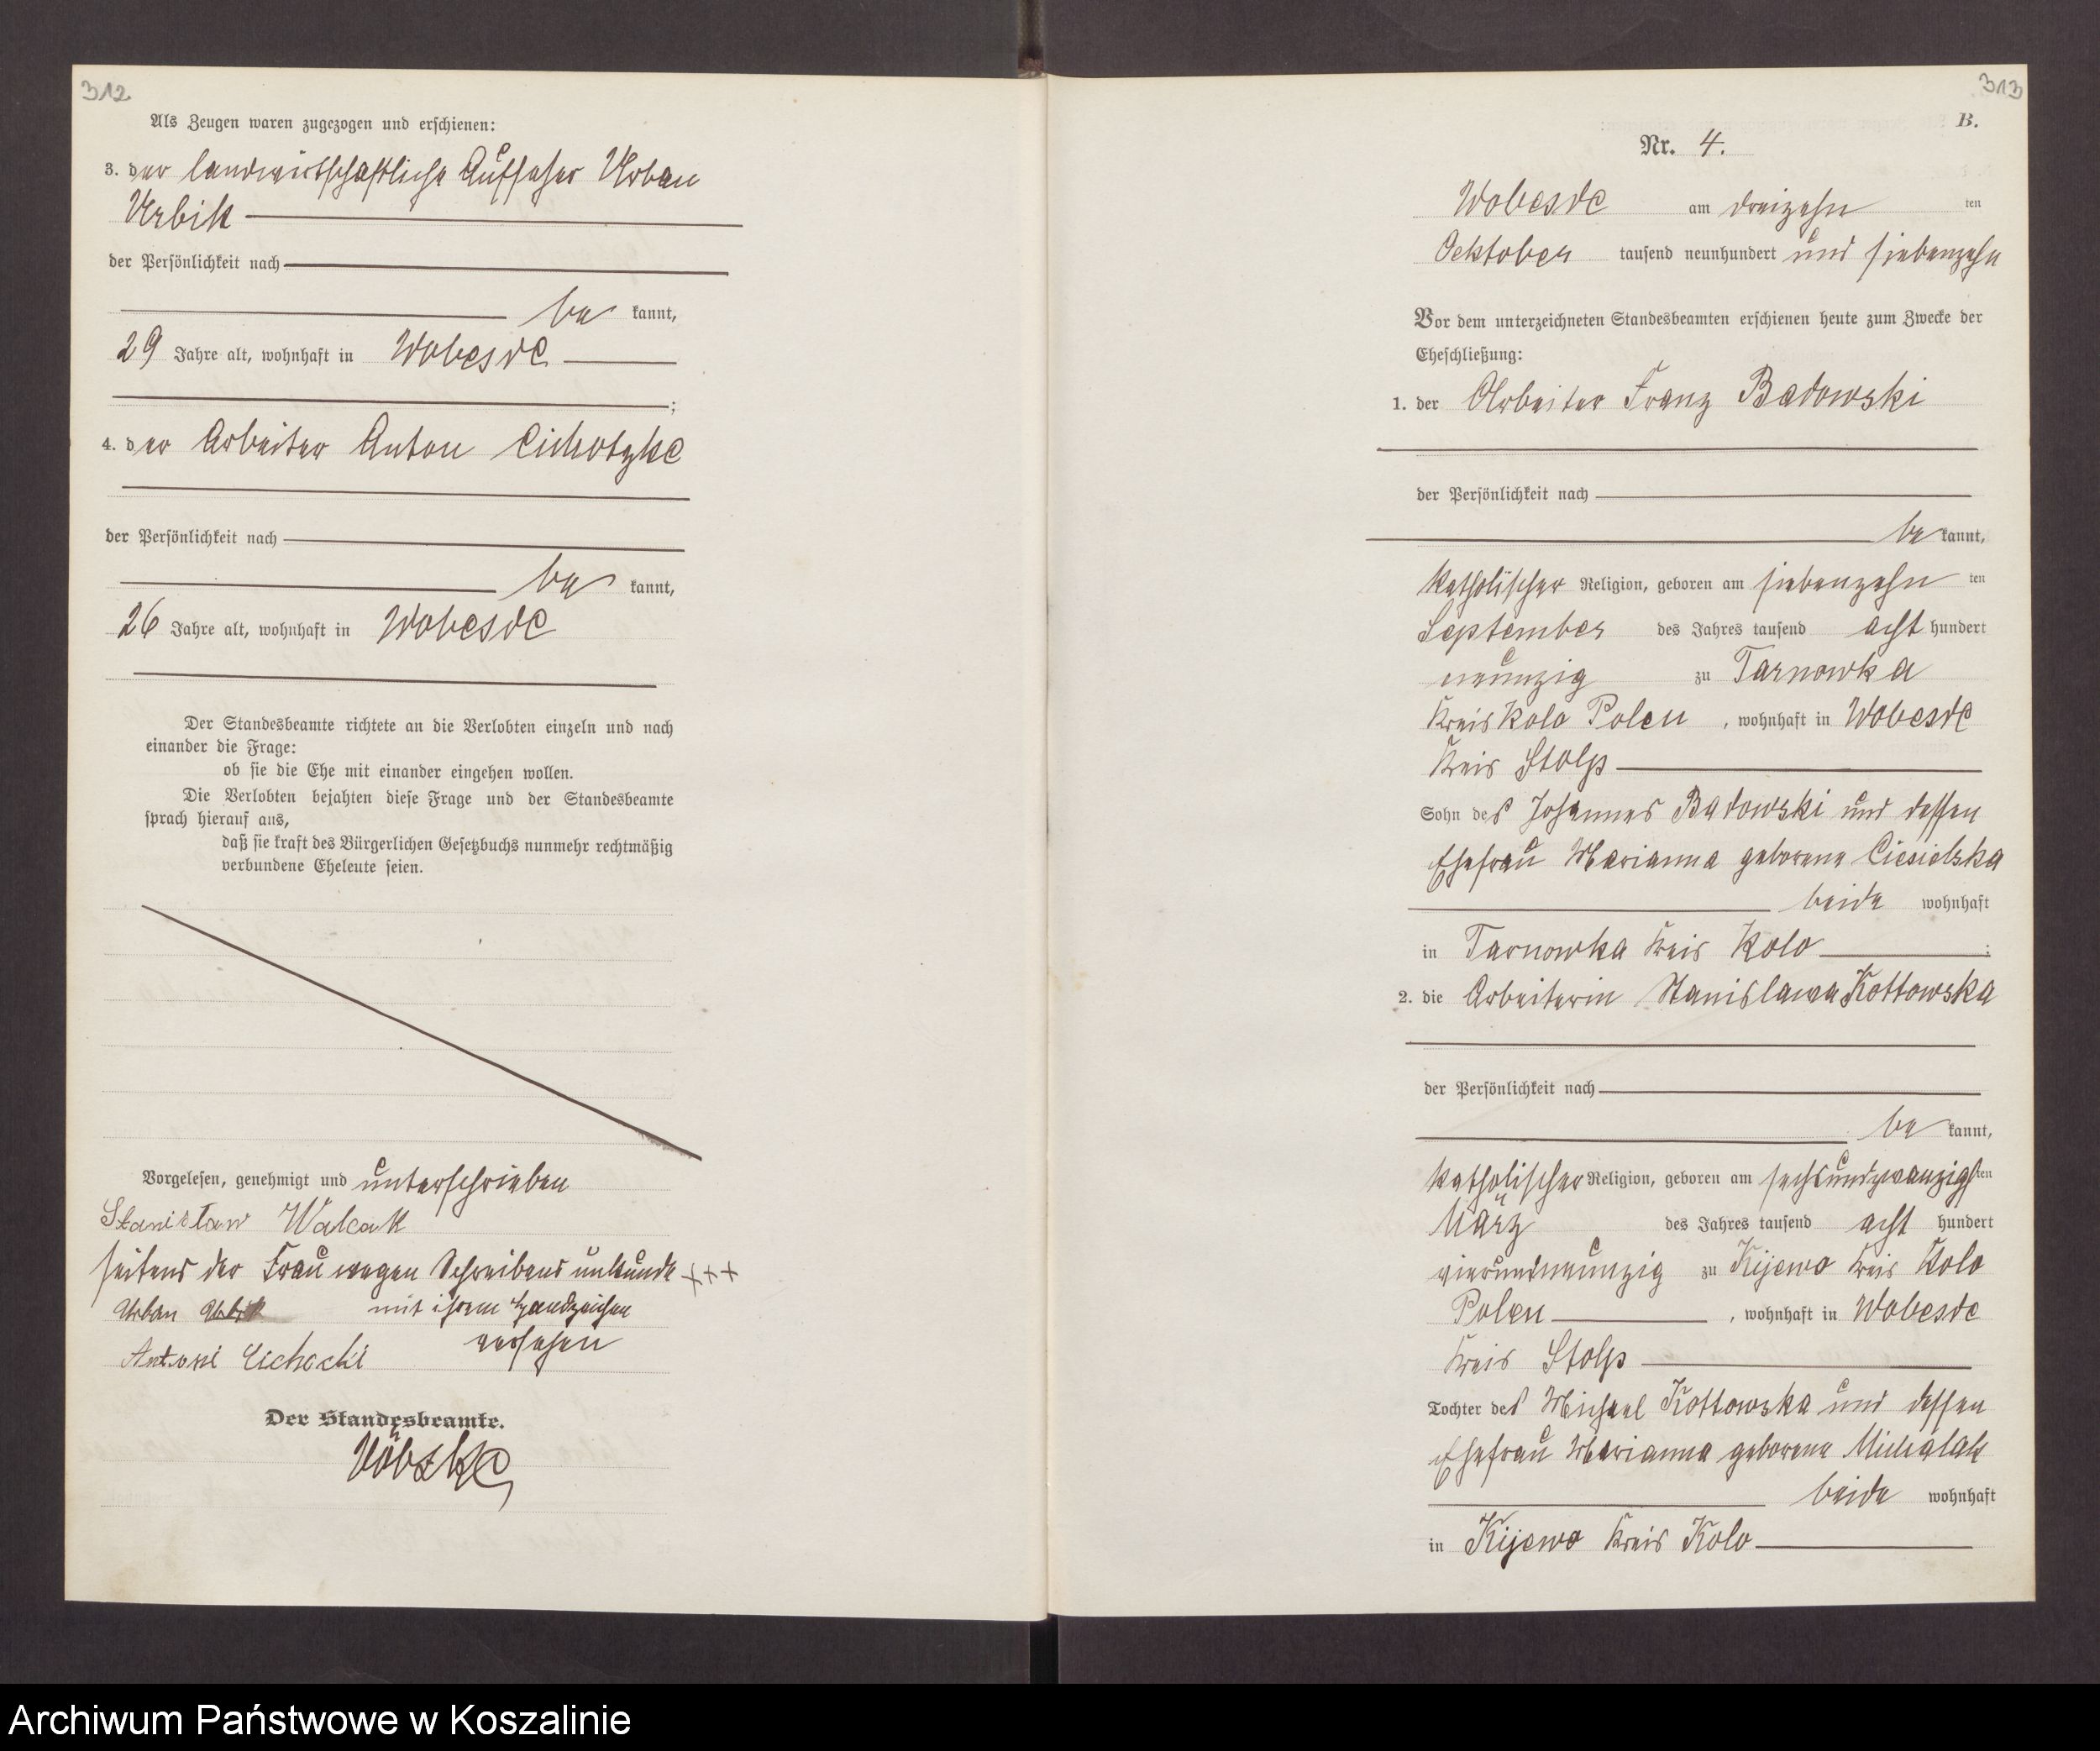 312
Als Zeugen waren zugezogen und erschienen:
3. der landwirtschaftliche Aufseher Urban
Urbik
der Persönlichkeit nach
be kannt,
29 Jahre alt, wohnhaft in Wobesde
;
4. der Arbeiter Anton Cichotzke
der Persönlichkeit nach
be kannt,
26 Jahre alt, wohnhaft in Wobesde
Der Standesbeamte richtete an die Verlobten einzeln und nach
einander die Frage:
ob sie die Ehe mit einander eingehen wollen.
Die Verlobten bejahten diese Frage und der Standesbeamte
sprach hierauf aus,
daß sie kraft des Bürgerlichen Gesetzbuchs nunmehr rechtmäßig
verbundene Eheleute seien.
Vorgelesen, genehmigt und unterschrieben
Stanisław Walcak
seitens der Frau wegen Schreibens unkunde +++
Urban Urbik mit ihrem Handzeichen
versehen
Antoni Cichocki
Der Standesbeamte.
313
B.
Nr. 4.
Wobesde am dreizehn ten
Ocktober tausend neunhundert und siebenzehn
Vor dem unterzeichneten Standesbeamten erschienen heute zum Zwecke der
Eheschließung:
1. der Arbeiter Franz Badowski
der Persönlichkeit nach
be kannt,
katholischer Religion, geboren am siebenzehn ten
September des Jahres tausend acht hundert
neunzig zu Tarnowka
Kreis Kolo Polen , wohnhaft in Wobesde
Kreis Stolp
Sohn des Johannes Badowski und dessen
Ehefrau Marianna geborene Ciesielska
beide wohnhaft
in Tarnowka Kreis Kolo ;
2. die Arbeiterin Stanislawa Kottowska
der Persönlichkeit nach
be kannt,
katholischer Religion, geboren am sechsundzwanzigsten
März des Jahres tausend acht hundert
vierundneunzig zu Kijewo Kreis Kolo
Polen , wohnhaft in Wobesde
Kreis Stolp
Tochter des Michael Kottowska und dessen
Ehefrau Marianna geborene Michalak
beide wohnhaft
in Kijewo Kreis Kolo
Archiwum Państwowe w Koszalinie